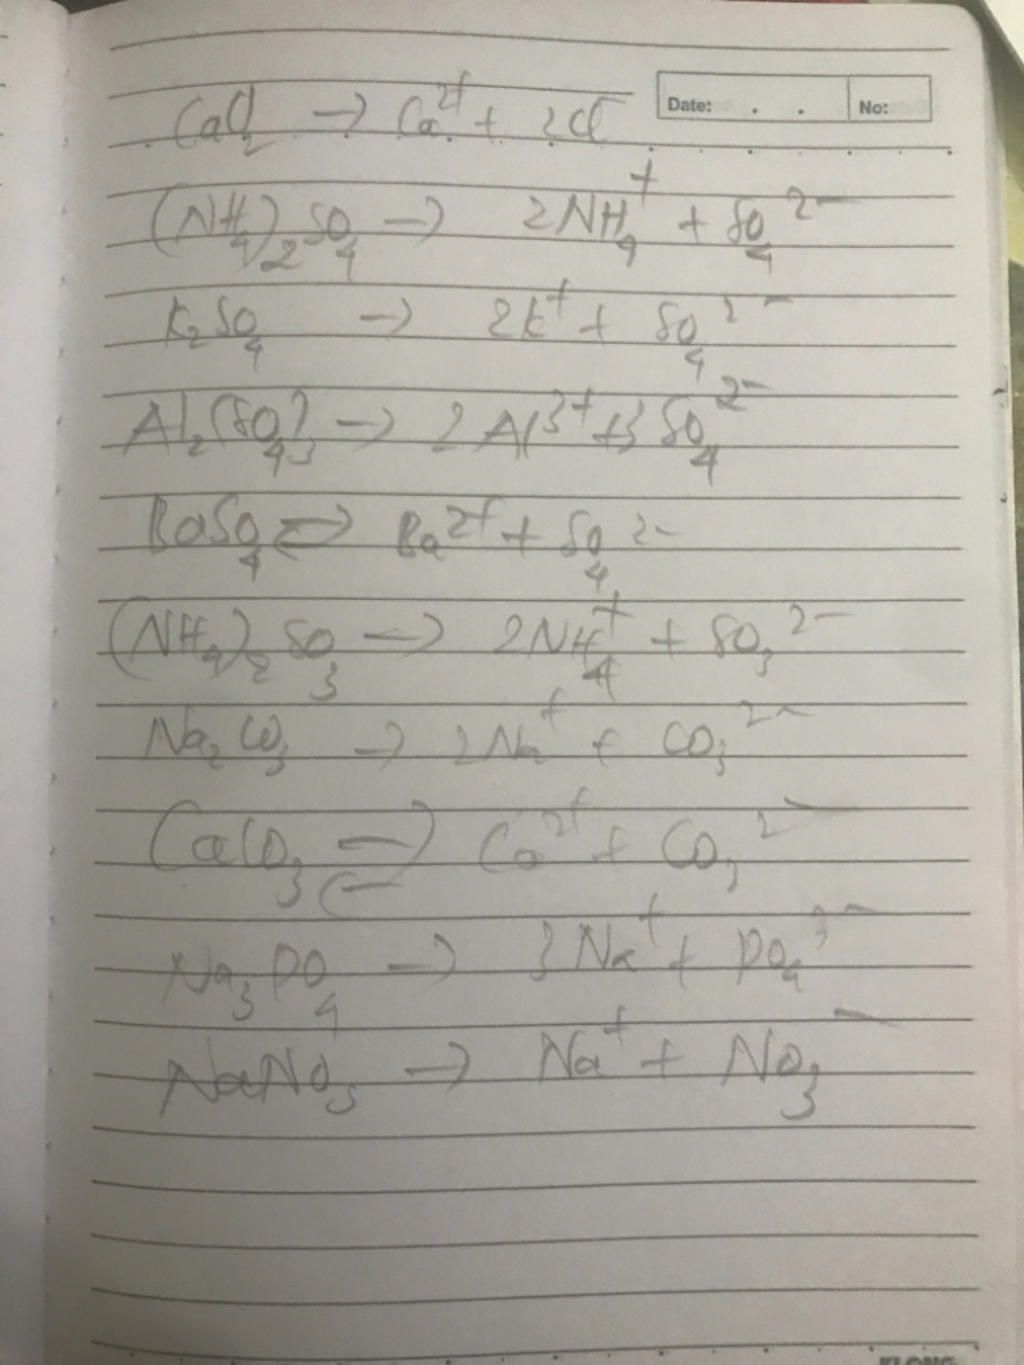 Date: . . No:
CaCl₂ → Ca²⁺ + 2Cl⁻
(NH₄)₂SO₄ → 2NH₄⁺ + SO₄²⁻
K₂SO₄ → 2K⁺ + SO₄²⁻
Al₂(SO₄)₃ → 2Al³⁺ + 3SO₄²⁻
BaSO₄ ⇌ Ba²⁺ + SO₄²⁻
(NH₄)₂SO₃ → 2NH₄⁺ + SO₃²⁻
Na₂CO₃ → 2Na⁺ + CO₃²⁻
CaCO₃ ⇌ Ca²⁺ + CO₃²⁻
Na₃PO₄ → 3Na⁺ + PO₄³⁻
NaNO₃ → Na⁺ + NO₃⁻